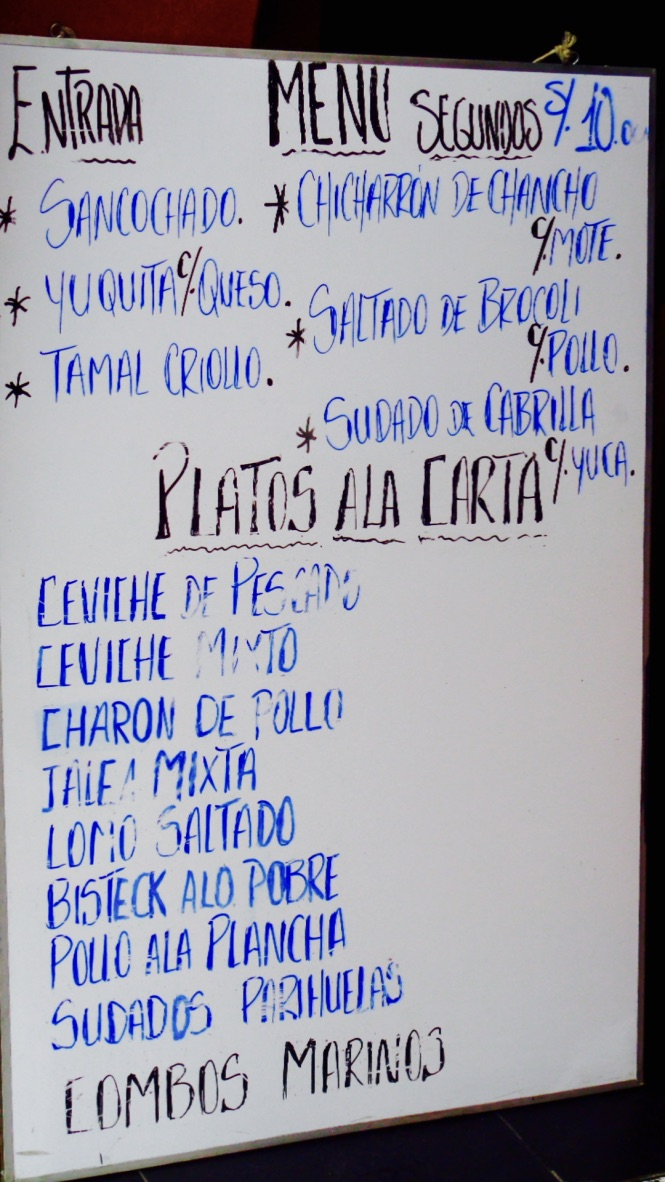 ENTRADA MENU SEGUNDOS S/. 10.00
* SANCOCHADO.
* YUQUITA C/. QUESO.
* TAMAL CRIOLLO.
* CHICHARRÓN DE CHANCHO
C/. MOTE.
* SALTADO DE BROCOLI
C/. POLLO.
* SUDADO DE CABRILLA
C/. YUCA.
PLATOS ALA CARTA
CEVICHE DE PESCADO
CEVICHE MIXTO
CHARON DE POLLO
JALEA MIXTA
LOMO SALTADO
BISTECK ALO POBRE
POLLO ALA PLANCHA
SUDADOS PARIHUELAS
COMBOS MARINOS